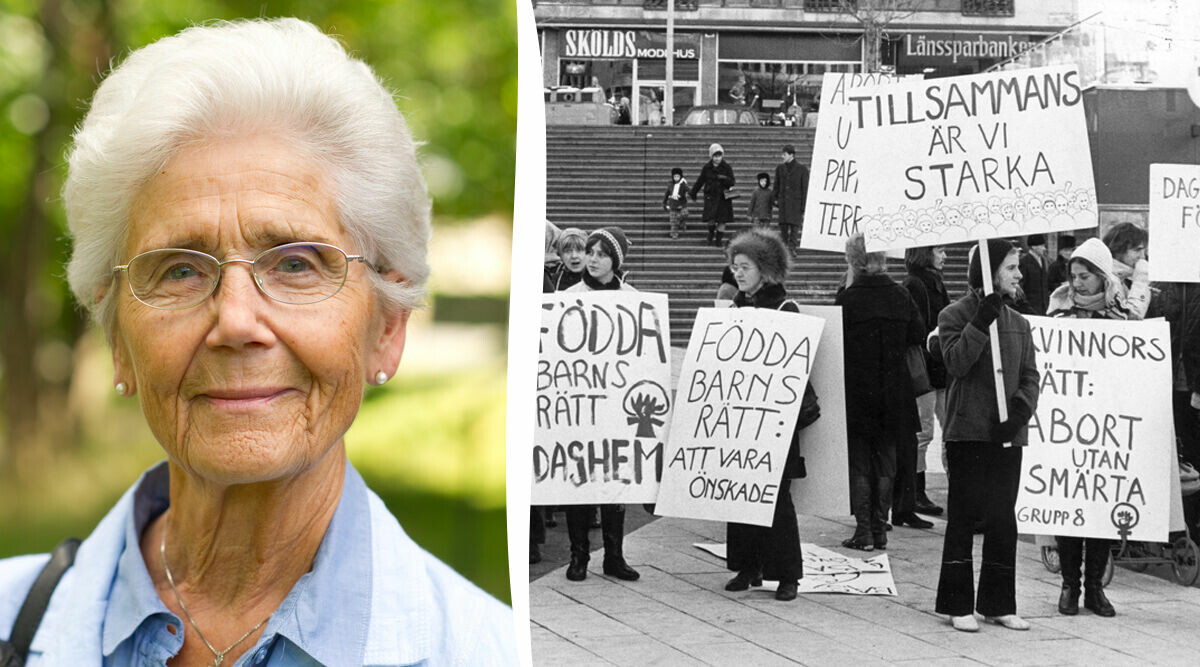 SKÖLDS MODEHUS
Länssparbanken
TILLSAMMANS
ÄR VI
STARKA
DAG
FÖDDA
BARNS
RÄTT
DAGHEM
FÖDDA
BARNS
RÄTT:
ATT VARA
ÖNSKADE
KVINNORS
RÄTT:
ABORT
UTAN
SMÄRTA
GRUPP 8